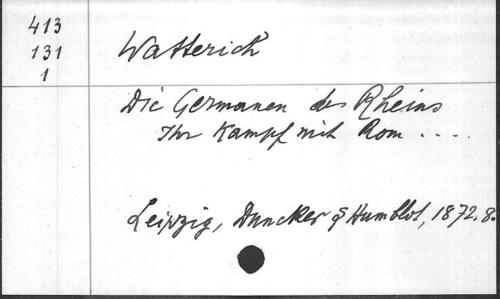 413
131
1
Watterich
Die Germanen des Rheins
Ihr Kampf mit Rom ....
Leipzig, Duncker & Humblot, 1872. 8.